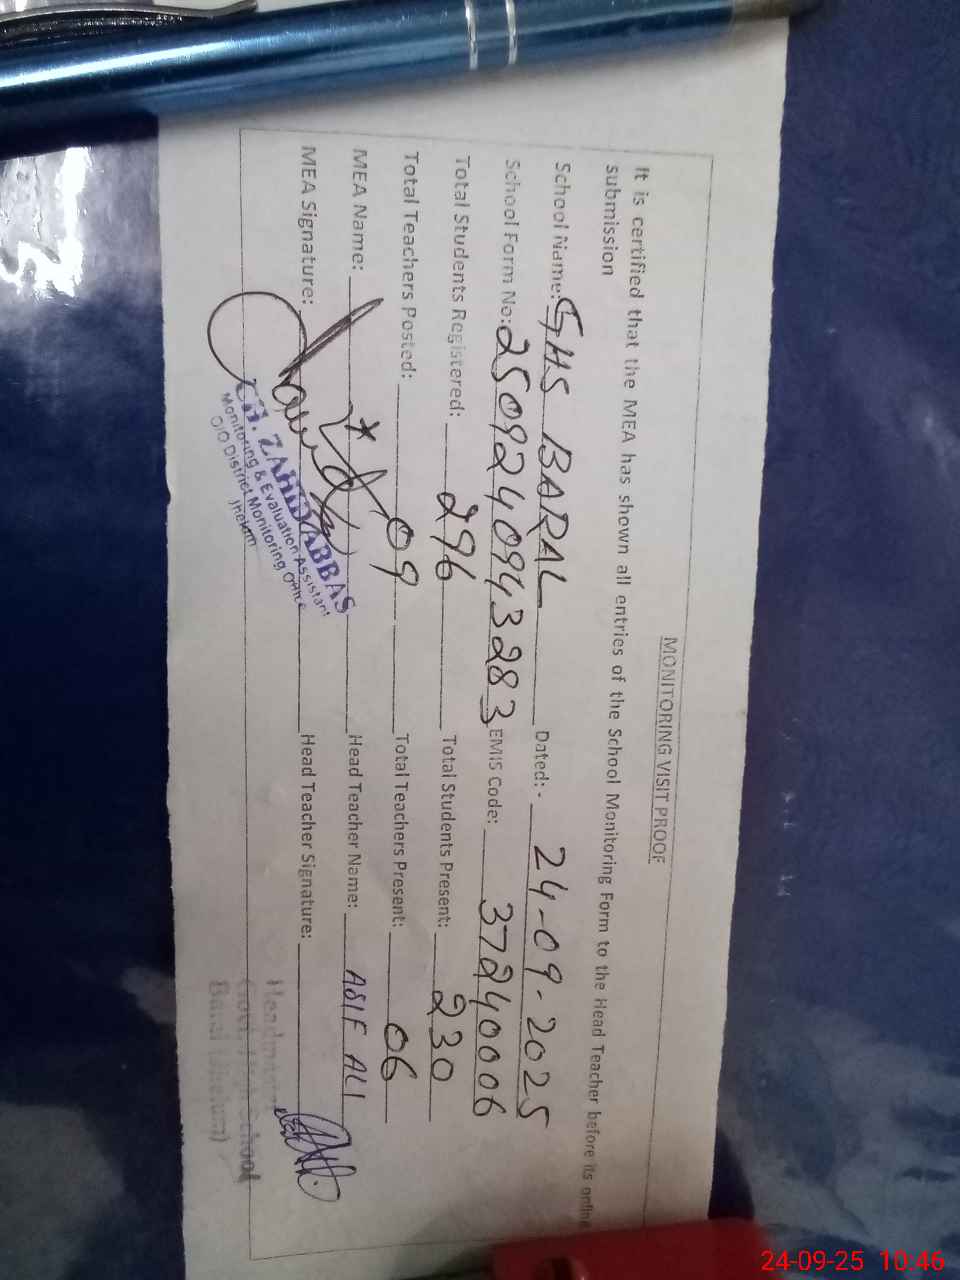 MONITORING VISIT PROOF
It is certified that the MEA has shown all entries of the School Monitoring Form to the Head Teacher before its online
submission
School Name: GHS BARAL Dated:- 24-09-2025
School Form No: 25092409432​83 EMIS Code: 37240006
Total Students Registered: 296 Total Students Present: 230
Total Teachers Posted: 09 Total Teachers Present: 06
MEA Name: Head Teacher Name: ASIF ALI
MEA Signature: Head Teacher Signature:
CH. ZAHID ABBAS
Monitoring & Evaluation Assistant
O/O District Monitoring Office
Jhelum
Headmaster
Govt. High School
Baral (Jhelum)
24-09-25 10:46